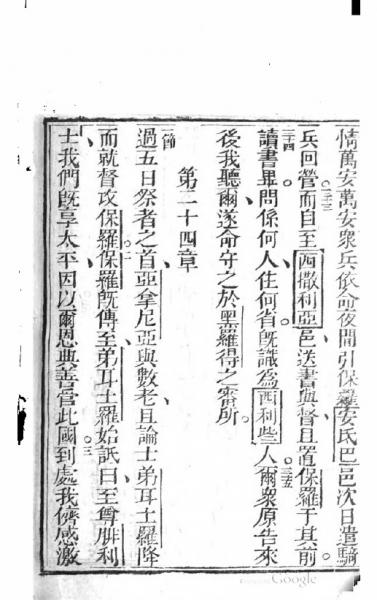 情萬安萬安衆兵依命夜間引保羅安氏巴邑次日遣騎
兵回營而自至西撒利亞邑送書與督且置保羅于其前
讀書畢問係何人住何省旣識爲西利些人爾衆原告來
後我聽爾遂命守之於黑羅得之衙所
第二十四章
過五日祭者之首亞拿尼亞與數老且論士弟耳土羅降
而就督攻保羅保羅旣傳至弟耳土羅始訴曰至尊腓利
士我們旣享太平因以爾恩典善當此國到處我儕感激
Google